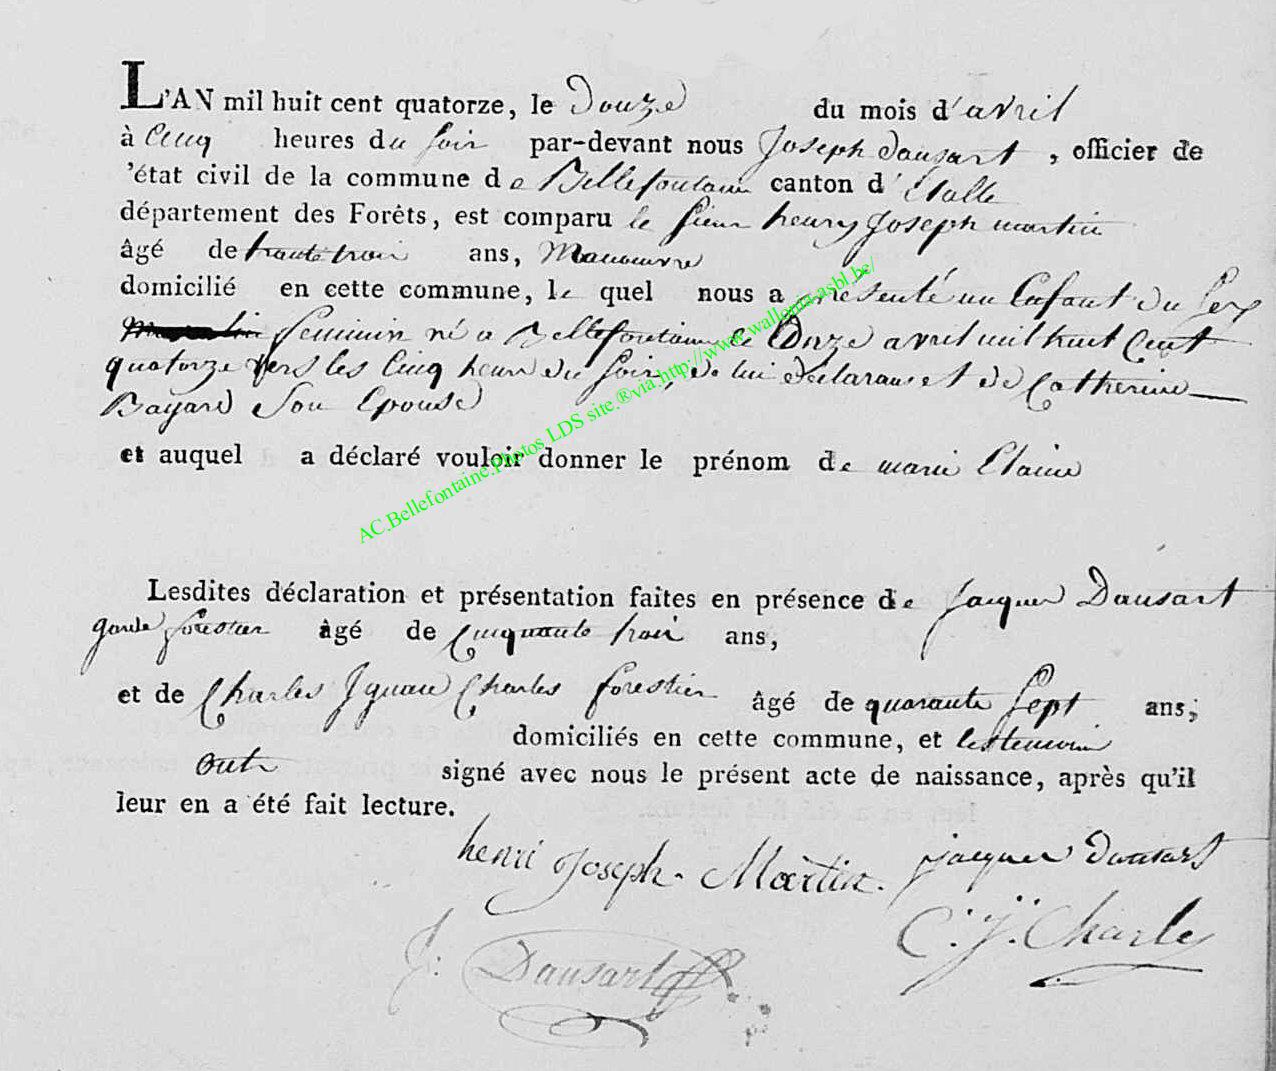 L'AN mil huit cent quatorze, le Douze du mois d'avril
à Cinq heures du soir par-devant nous Joseph Dausart , officier de
'état civil de la commune de Bellefontaine canton d'Etalle
département des Forêts, est comparu le sieur henry Joseph martin
âgé de trante trois ans, Manouvre
domicilié en cette commune, le quel nous a presenté un Enfant du Sex
feminin né a Bellefontaine le Douze avril mil huit Cent
quatorze vers les Cinq heur du soir, de lui declarans et de Catherine
Bayard Son Epouse
et auquel a déclaré vouloir donner le prénom de marie
Lesdites déclaration et présentation faites en présence de Jacques Dausart
garde forestier âgé de cinquante trois ans,
et de Charles Ignace Charles forestier âgé de quarante sept ans,
domiciliés en cette commune, et les temoin
ont signé avec nous le présent acte de naissance, après qu'il
leur en a été fait lecture.
henri Joseph Martin. jacques Dausart
C. J. Charles
J: Dausart
AC.Bellefontaine.Photos LDS site.®via http://www.wallonia-asbl.be/